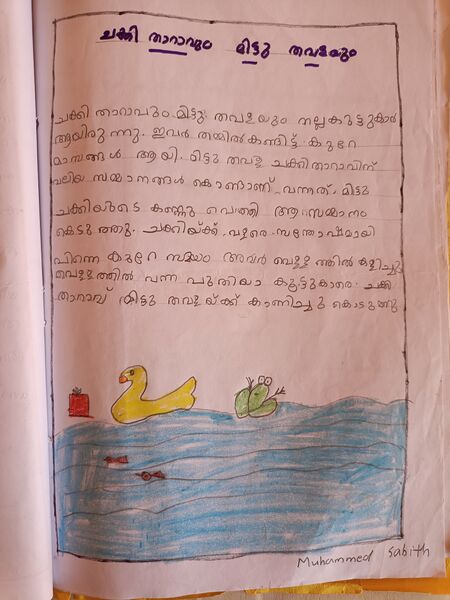 ചക്കി താറാവും മിട്ടു തവളയും
ചക്കി താറാവും മിട്ടു തവളയും നല്ലകൂട്ടുകാർ
ആയിരുന്നു. ഇവർ തമ്മിൽകണ്ടിട്ട് കുറേ
മാസങ്ങൾ ആയി. മിട്ടു തവള ചക്കിതാറാവിന്
വലിയ സമ്മാനങ്ങൾ കൊണ്ടാണ് വന്നത്. മിട്ടു
ചക്കിയുടെ കണ്ണു പൊത്തി ആ സമ്മാനം
കൊടുത്തു. ചക്കിയ്ക്ക് വളരെ സന്തോഷമായി
പിന്നെ കുറേ സമയം അവർ വെള്ളത്തിൽ കളിച്ചു
വെള്ളത്തിൽ വന്ന പുതിയാ കൂട്ടുകാരെ ചക്കി
താറാവ് മിട്ടു തവളയ്ക്ക് കാണിച്ചു കൊടുത്തു
Muhammed Sabith